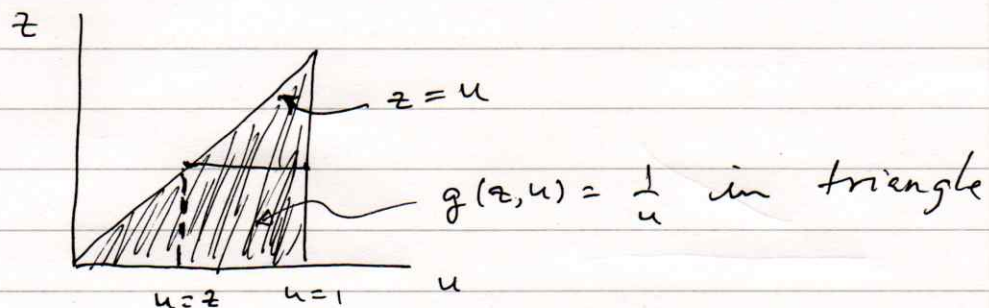 z
z = u
g(z,u) = 1/u in triangle
u=z u=1 u